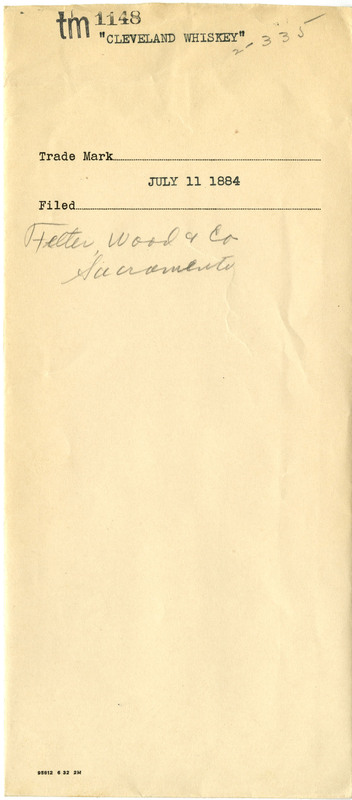 tm 1148
"CLEVELAND WHISKEY"
2-335
Trade Mark
JULY 11 1884
Filed
Felter, Wood & Co
Sacramento
98612 6 32 2M